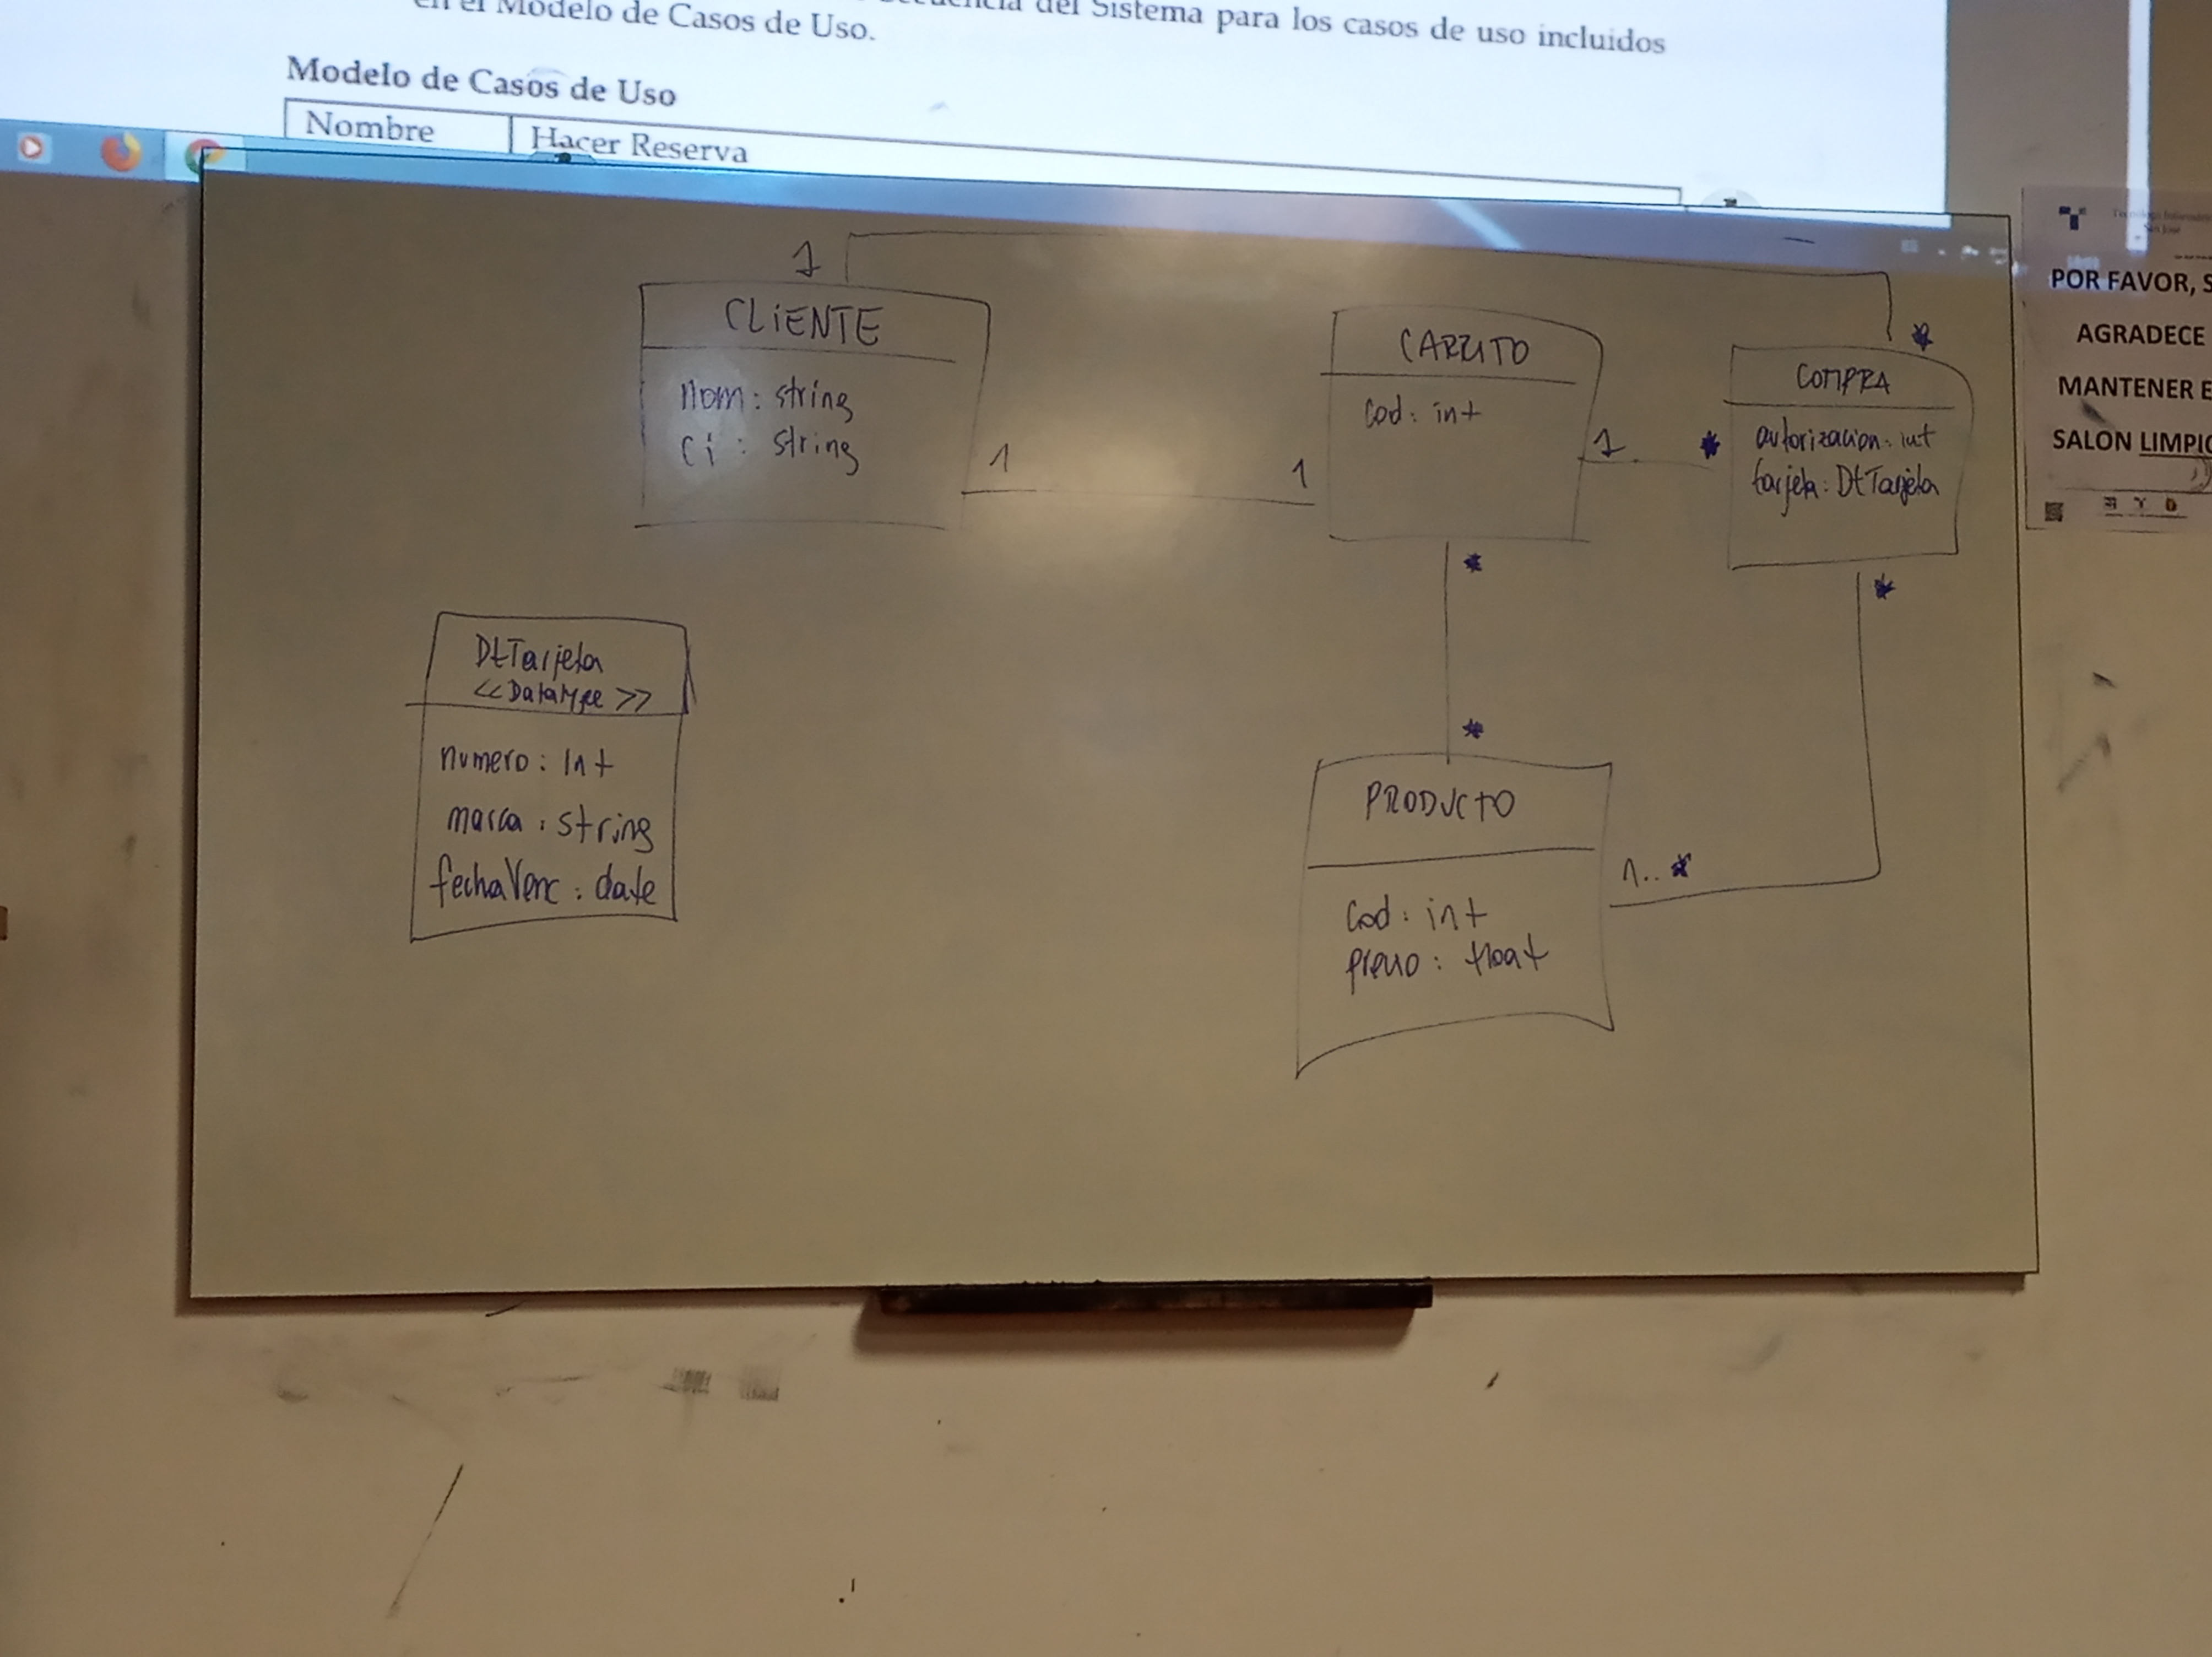 en el Modelo de Casos de Uso.
del Sistema para los casos de uso incluidos
Modelo de Casos de Uso
Nombre
Hacer Reserva
1
CLIENTE
nom: string
ci : string
1
1
CARRITO
cod: int
1
*
*
COMPRA
autorizacion: int
tarjeta: DtTarjeta
*
*
*
DtTarjeta
<<DataType>>
numero: int
marca: string
fechaVenc: date
PRODUCTO
cod: int
precio: float
1..*
POR FAVOR, S
AGRADECE
MANTENER E
SALON LIMPIO